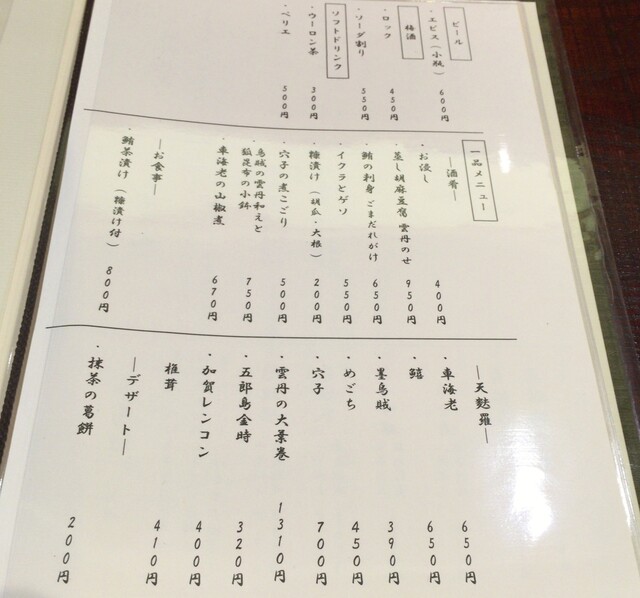 ビール
・エビス(小瓶) 600円
梅酒
・ロック 450円
・ソーダ割り 550円
ソフトドリンク
・ウーロン茶 300円
・ペリエ 500円
一品メニュー
―酒肴―
・お浸し 400円
・蒸し胡麻豆腐 雲丹のせ 950円
・鮪の刺身 ごまだれがけ 650円
・イクラとゲソ 550円
・糠漬け(胡瓜・大根) 200円
・穴子の煮こごり 500円
・烏賊の雲丹和えと
鮑昆布の小鉢 750円
・車海老の山椒煮 670円
―お食事―
・鮪茶漬け(糠漬け付) 800円
―天麩羅―
・車海老 650円
・鱚 650円
・墨烏賊 390円
・めごち 450円
・穴子 700円
・雲丹の大葉巻 1310円
・五郎島金時 320円
・加賀レンコン 400円
椎茸 410円
―デザート―
・抹茶の葛餅 200円